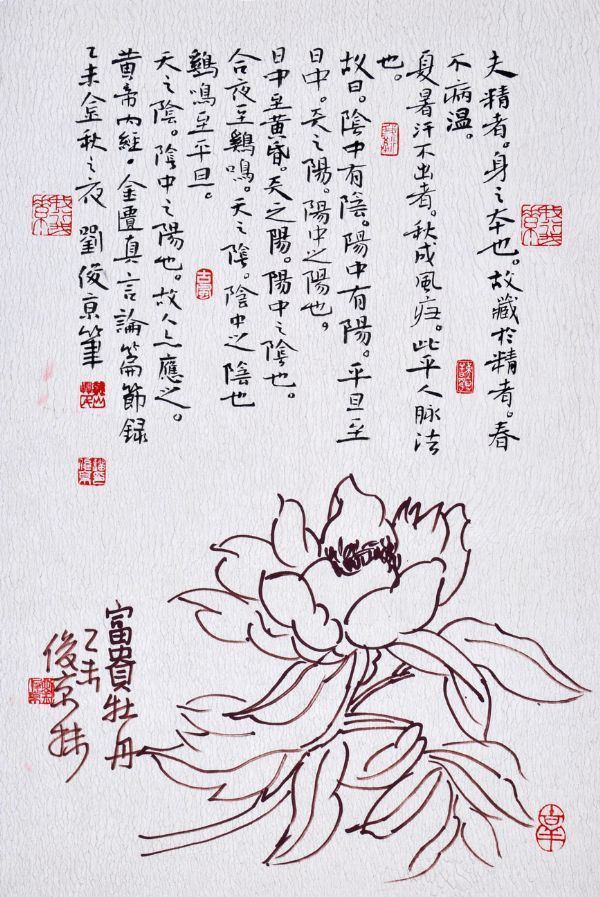 夫精者。身之本也。故藏於精者。春
不病温。
夏暑汗不出者。秋成風疟。此平人脉法
也。
故曰。陰中有陰。陽中有陽。平旦至
日中。天之陽。陽中之陽也。
日中至黄昏。天之陽。陽中之陰也。
合夜至鷄鳴。天之陰。陰中之陰也
鷄鳴至平旦。
天之陰。陰中之陽也。故人亦應之。
黄帝内經。金匱真言論篇節録
乙未金秋之夜 劉俊京筆
富貴牡丹
乙未
俊京